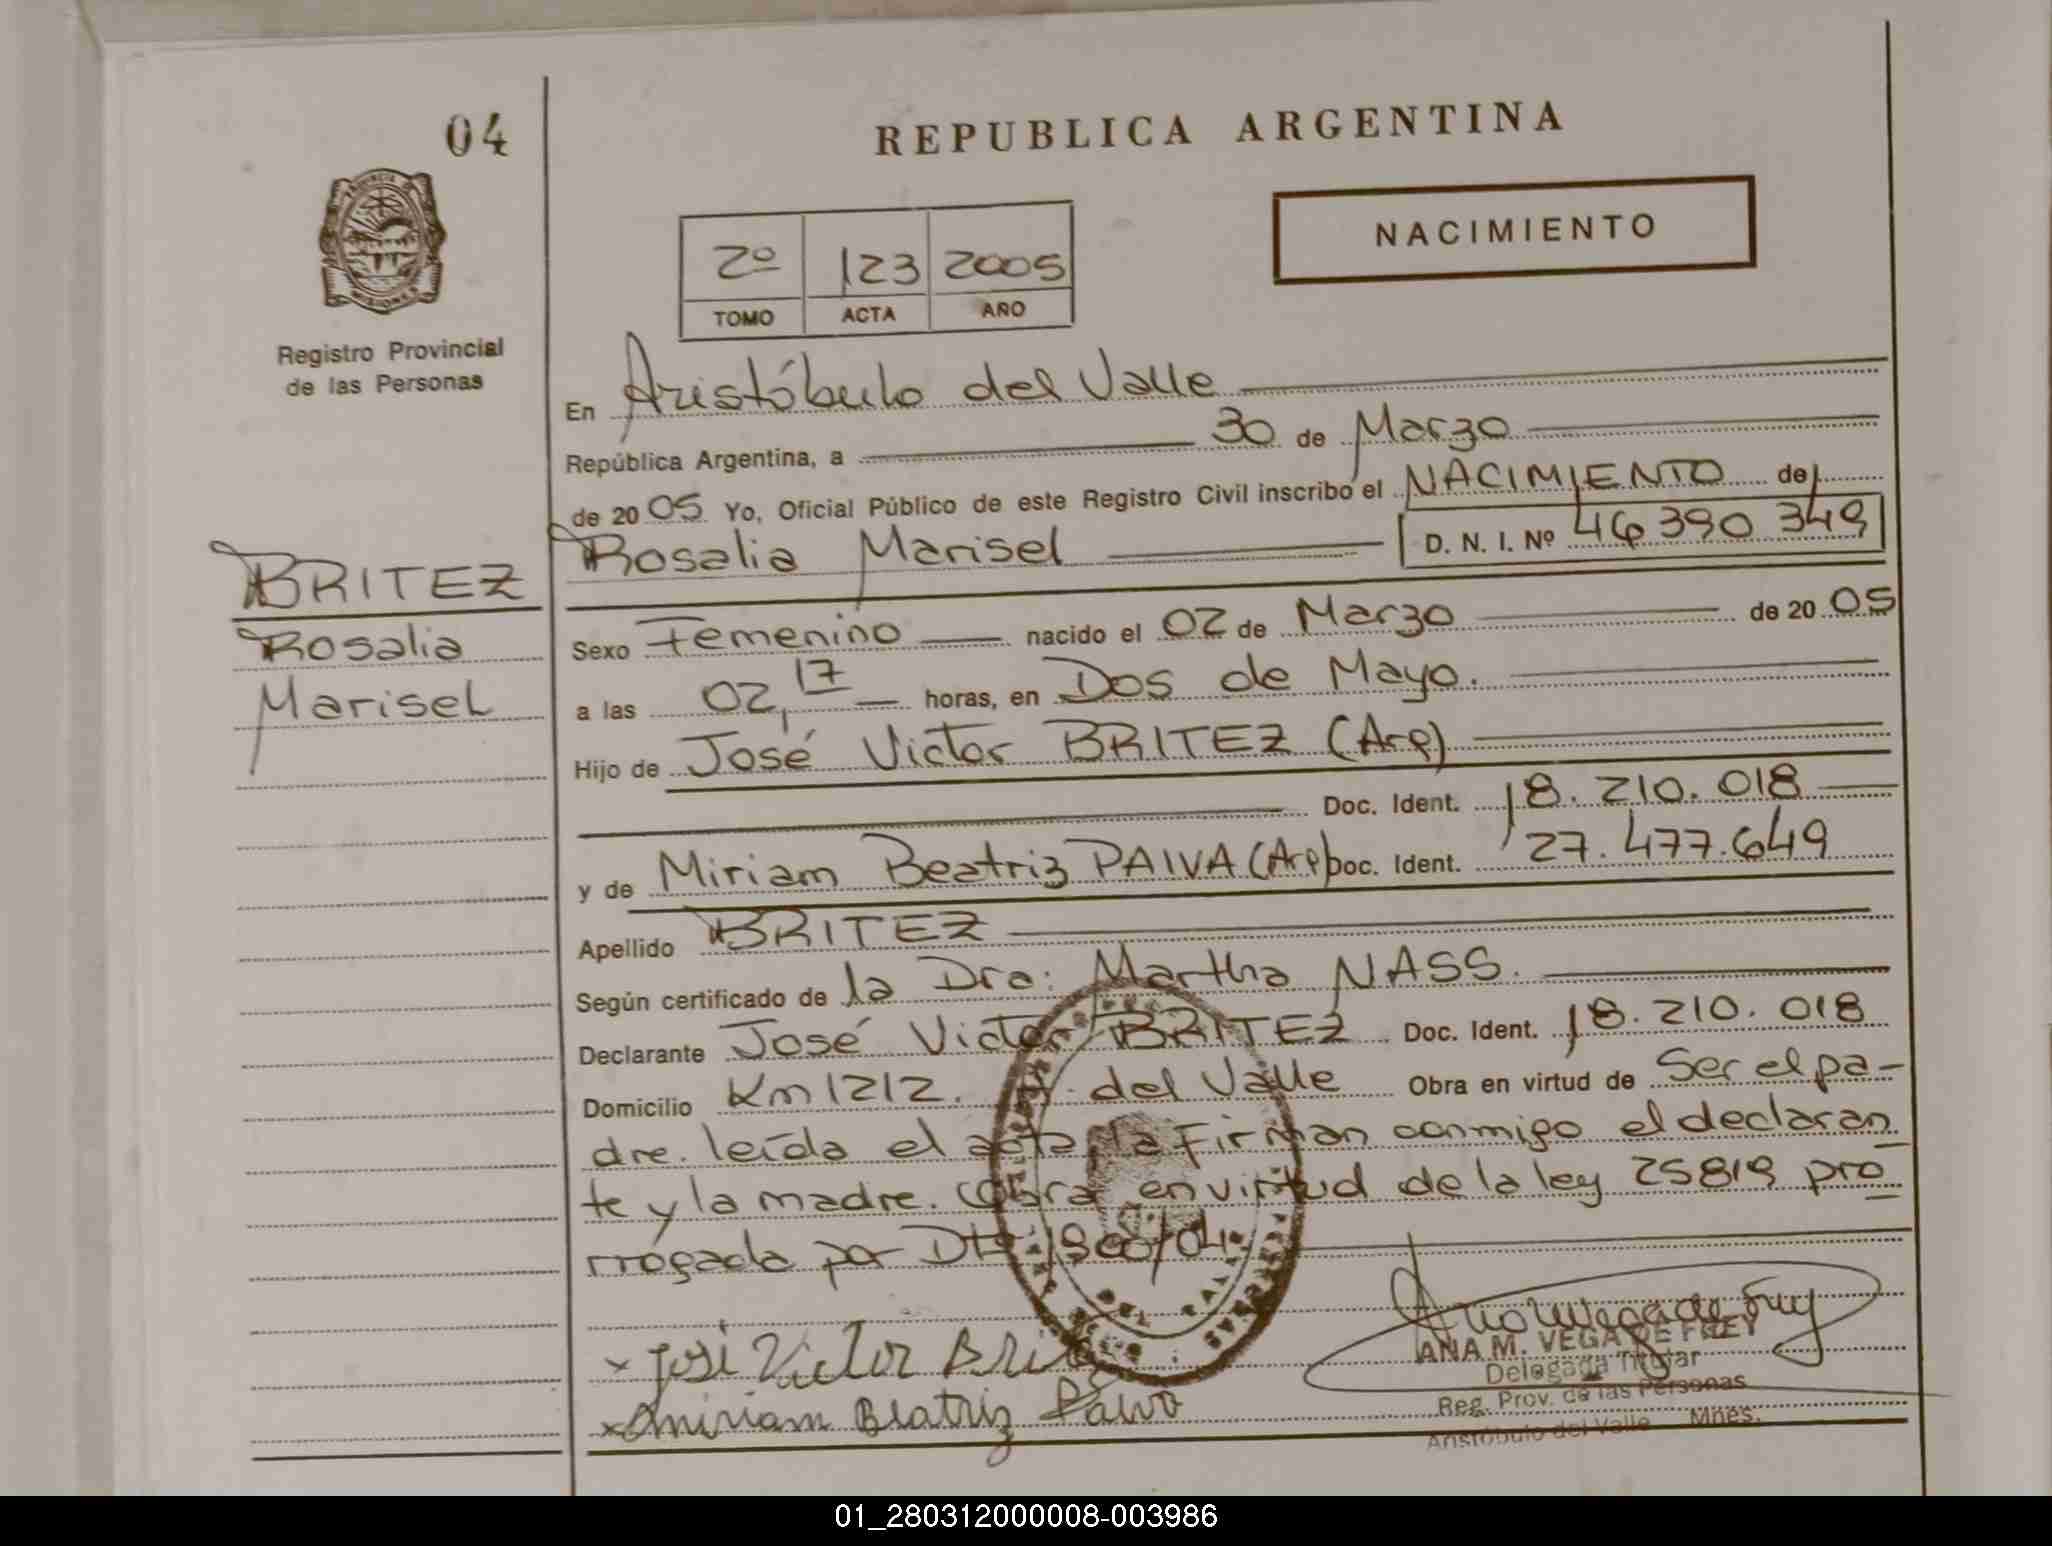 04
REPUBLICA ARGENTINA
NACIMIENTO
2º 123 2005
TOMO ACTA AÑO
PROVINCIA DE
MISIONES
Registro Provincial
de las Personas
BRITEZ
Rosalia
Marisel
En Aristóbulo del Valle
República Argentina, a 30 de Marzo
de 2005 Yo, Oficial Público de este Registro Civil inscribo el NACIMIENTO de
Rosalia Marisel D. N. I. Nº 46 390 349
Sexo Femenino nacido el 02 de Marzo de 2005
a las 02,17 horas, en Dos de Mayo.
Hijo de José Victor BRITEZ (Arg)
Doc. Ident. 18.210.018
y de Miriam Beatriz PAIVA (Arg) Doc. Ident. 27.477.649
Apellido BRITEZ
Según certificado de la Dra: Martha NASS.
Declarante José Victor BRITEZ Doc. Ident. 18.210.018
Domicilio Km 1212. del Valle Obra en virtud de Ser el pa-
dre. leída el acta, la Firman conmigo el declaran
te y la madre. Obra en virtud de la ley 25819 pro
rrogada por Dto
José Victor Britez
Miriam Beatriz Paiva
ANA M. VEGA DE FREY
Delegada Titular
Reg. Prov. de las Personas
Aristóbulo del Valle Mnes.
01_280312000008-003986